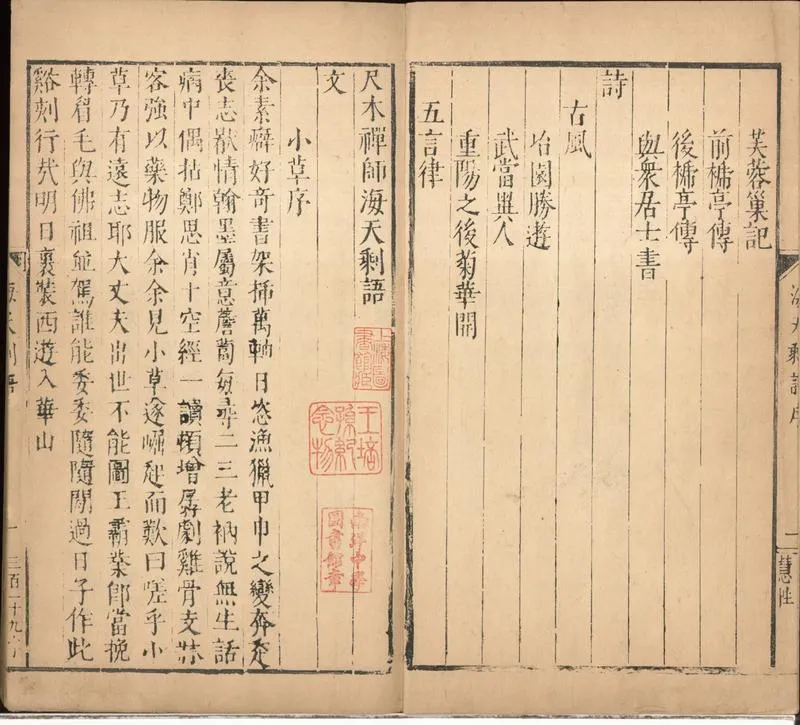 芙蓉巢記
前㮛亭傳
後㮛亭傳
與衆居士書
詩
古風
坮園勝遊
武當異人
重陽之後菊華開
五言律
二
慧性
尺木禪師海天剩語
文
小草序
余素癖好奇書架揷萬軸日恣漁獵甲巾之變奔走
喪志厭情翰墨屬意薝蔔每尋二三老衲說無生話
病中偶拈鄭思肖十空經一讀頓增孱劇雞骨支牀
客強以藥物服余余見小草遂崛起而歎曰嗟乎小
草乃有遠志耶大丈夫出世不能圖王霸業卽當挽
轉眉毛與佛祖並駕誰能委委隨隨閙過日子作此
谿刻行㦲明日裹裝西遊入華山
海天剩語
一
三百二十九个
上海圖
書館藏
王培
孫紀
念物
南洋中學
圖書館章